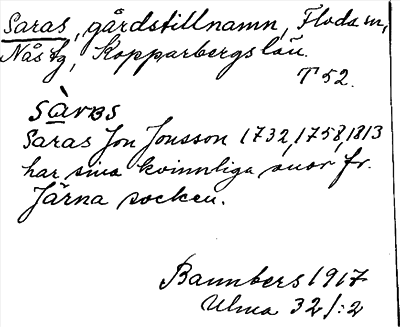 Saras, gårdstillnamn, Floda sn,
Nås tg, Kopparbergs län.
T 52.
sàras
Saras Jon Jonsson 1732, 1758, 1813
har sina kvinnliga anor fr.
Järna socken.
Bannbers 1917
Ulma 32/:2